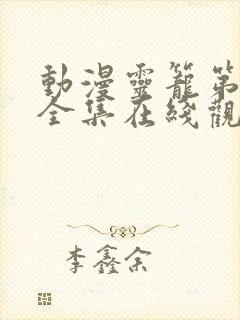 動漫靈籠第
全集在綫觀
李鑫余